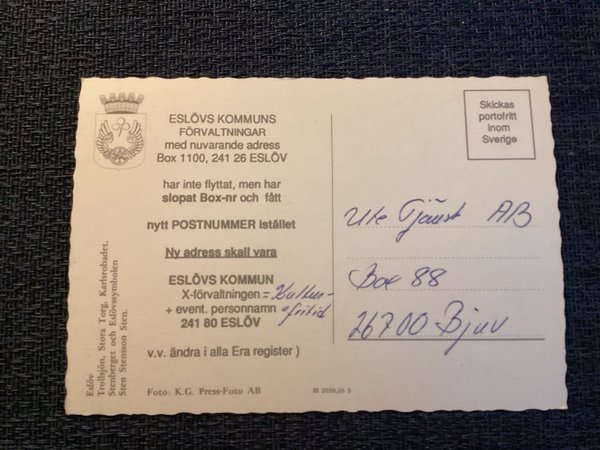 ESLÖVS KOMMUNS
FÖRVALTNINGAR
med nuvarande adress
Box 1100, 241 26 ESLÖV
har inte flyttat, men har
slopat Box-nr och fått
nytt POSTNUMMER istället
Ny adress skall vara
ESLÖVS KOMMUN
X-förvaltningen = Kultur-
+ event. personnamn fritid
241 80 ESLÖV
v.v. ändra i alla Era register )
Foto: K.G. Press-Foto AB
Bl 2050,26 S
Eslöv
Trollsjön, Stora Torg, Karlsrobadet,
Stenberget och Eslövssymbolen
Sten Stensson Sten.
Skickas
portofritt
inom
Sverige
Ute Tjänst AB
Box 88
267 00 Bjuv